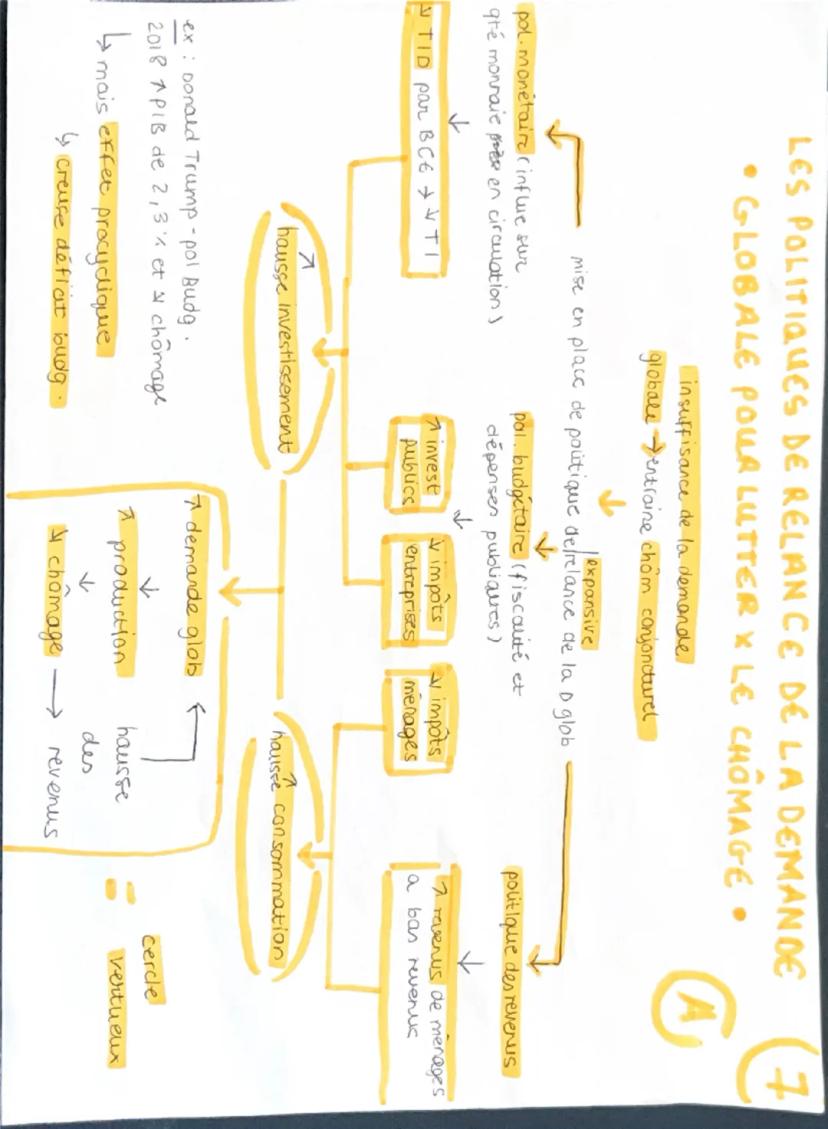 LES POLITIQUES DE RELANCE DE LA DEMANDE
• GLOBALE POUR LUTTER X LE CHÔMAGE •
7
A
insuffisance de la demande
globale → entraine chôm conjoncturel
↓
expansive
mise en place de politique de relance de la D glob
pol. monétaire (influe sur
qté monnaie en circulation)
↓
↘ TID par BCE → ↘ TI
pol. budgétaire (fiscalité et
dépenses publiques)
↓
↗ invest
publics
↘ impôts
entreprises
↘ impôts
ménages
politique des revenus
↓
↗ revenus de ménages
a bas revenus
↗
hausse investissement
↗
hausse consommation
ex : Donald Trump - pol Budg.
2018 ↗ PIB de 2,3% et ↘ chômage
↳ mais effet procyclique
↳ creuse déficit budg.
↗ demande glob
↓
↗ production
↓
↘ chômage → revenus
hausse
des
= cercle
vertueux